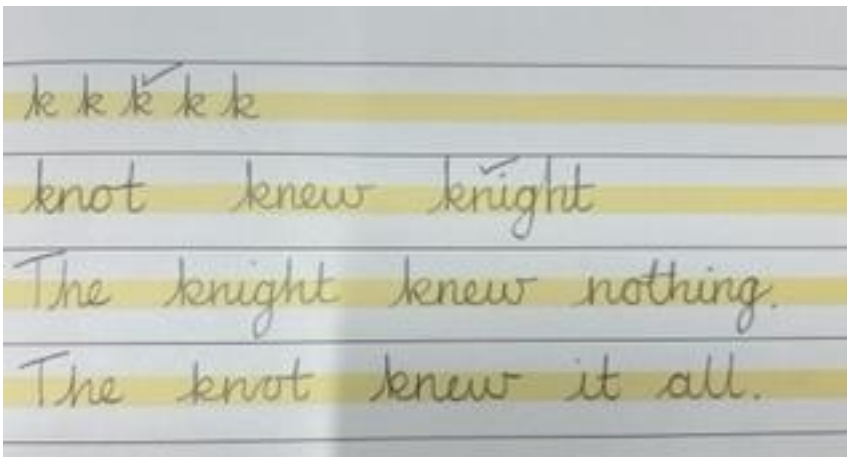 k k k k k
knot knew knight
The knight knew nothing.
The knot knew it all.